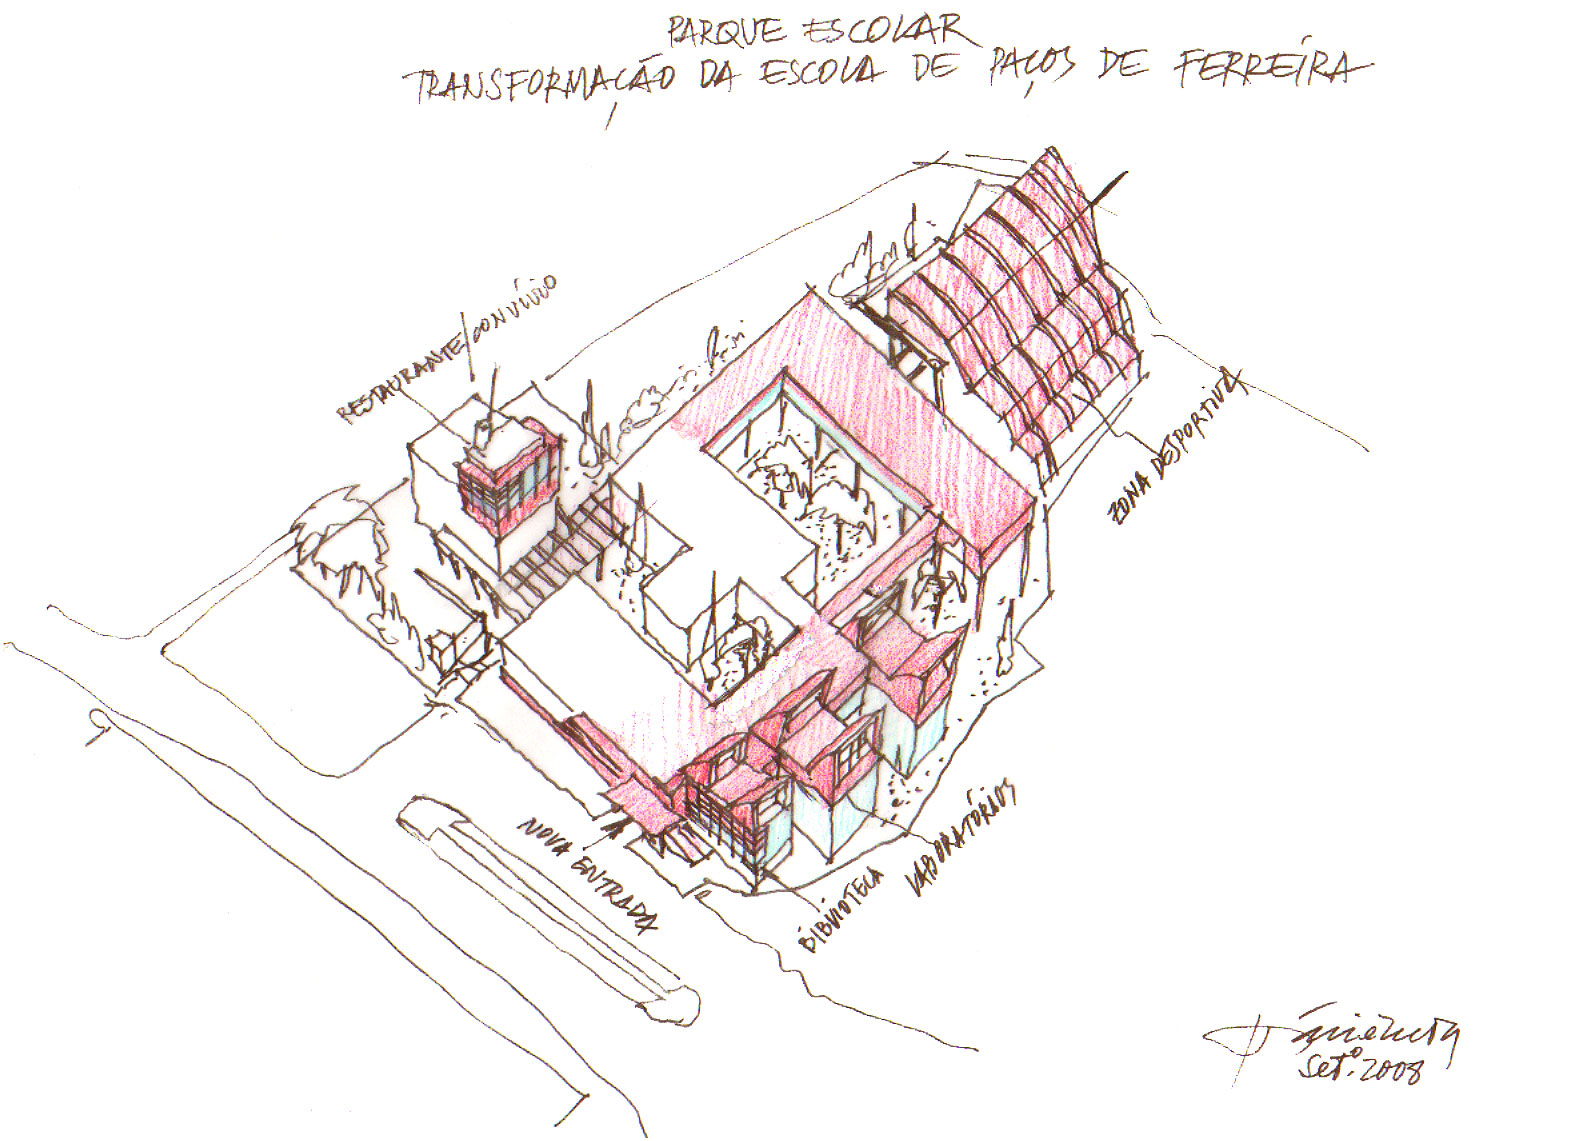 PARQUE ESCOLAR
TRANSFORMAÇÃO DA ESCOLA DE PAÇOS DE FERREIRA
RESTAURANTE/CONVÍVIO
ZONA DESPORTIVA
NOVA ENTRADA
BIBLIOTECA
LABORATÓRIOS
Setº.2008